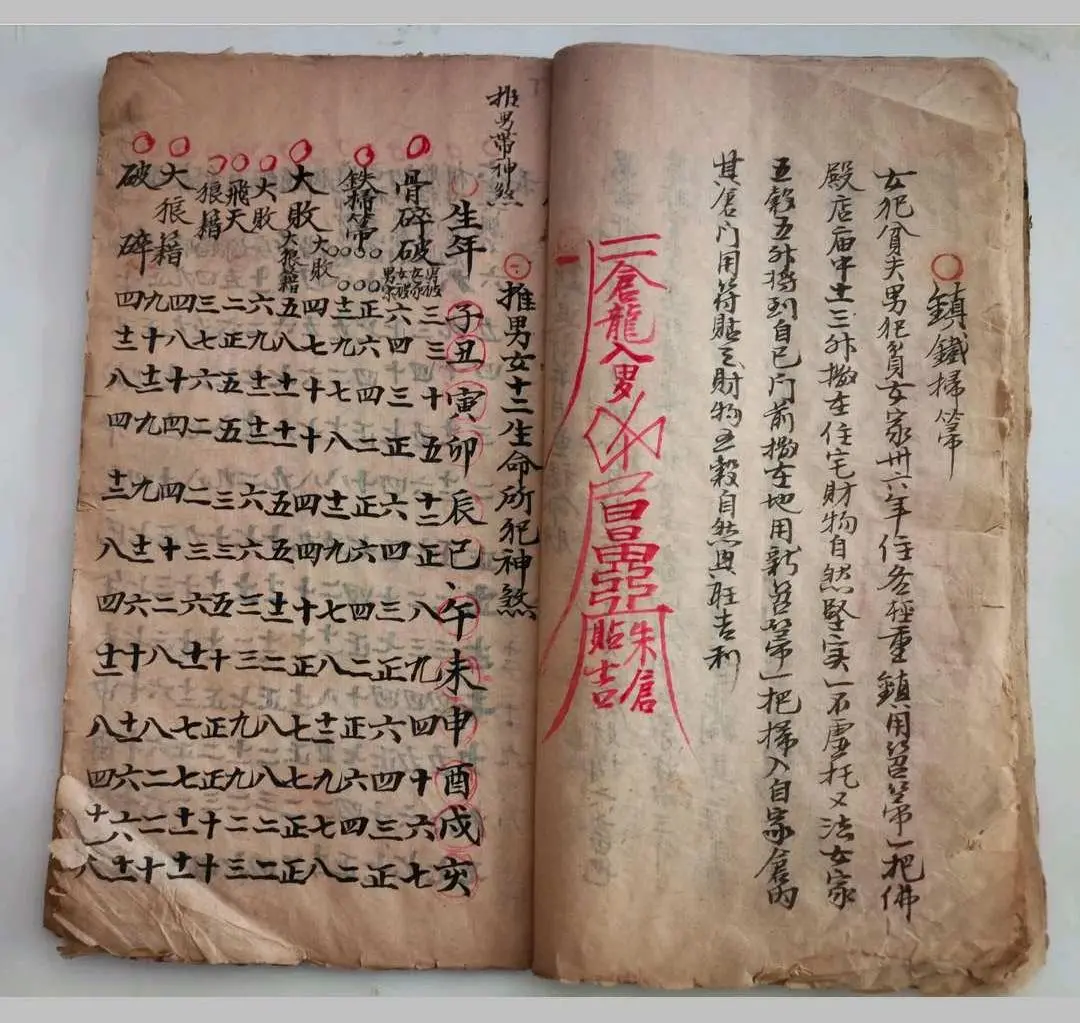 鎮鐵掃箒
女犯貧夫男犯貧女家卅六年住各輕重鎮用笤箒一把佛
殿店庙中土三升撒在住宅財物自然堅实一不虚托又法女家
五穀五升到自己门前撒在地用新笤箒一把掃入自家倉内
其倉门用符貼之財物五穀自然興旺吉利
倉龍入男
朱倉
貼吉
推男女十二生命所犯神煞
推男帶神煞
生年子丑寅卯辰巳午未申酉戌亥
骨碎破男破女家女破男家三三十五十二正八九四十六七
六四三正六四三正六四三正
鉄掃箒正六四二正六四二正六四二
十二九七八十二九七八十二九七八
大敗四七十十四四十正七七正正
大敗大狼籍五九十一十一五五十一二八八二二
大敗六八十二十二六六十二三九九三三
飛天二正五五三三五十正正十二十
狼籍三七六二二三六十二七七十一十一
大狼籍四八十四四十二八八二二十
破碎九十十二九九十二六十二十二六六十二
四十二八四十二八四十二八四十二八